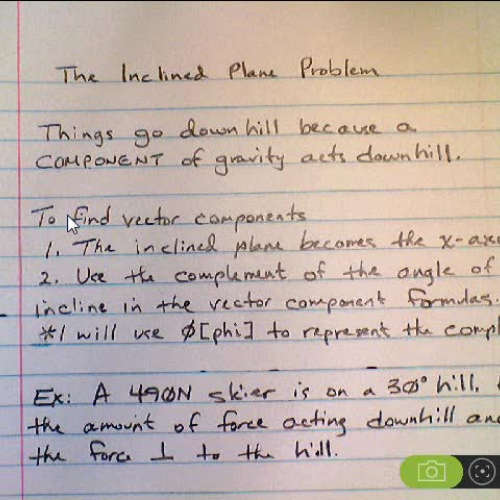 The Inclined Plane Problem
Things go downhill because a
COMPONENT of gravity acts downhill.
To find vector components
1. The inclined plane becomes the x-axis
2. Use the complement of the angle of
incline in the vector component formulas.
*I will use ø[phi] to represent the compl
Ex: A 490N skier is on a 30° hill.
the amount of force acting downhill and
the force ⊥ to the hill.